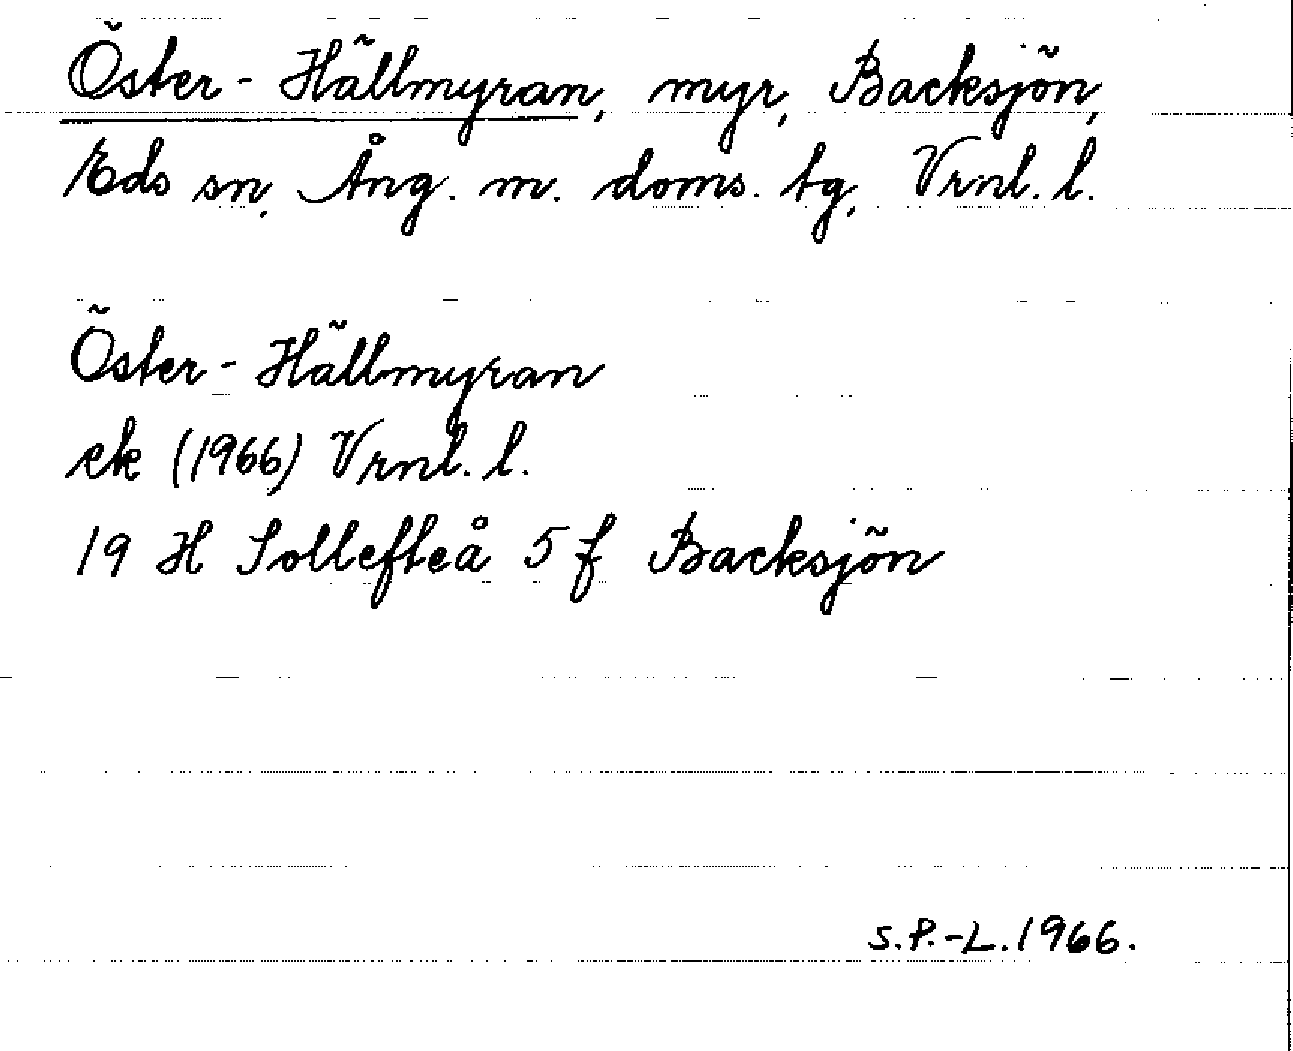 Öster-Hällmyran, myr, Backsjön,
Eds sn, Ång. m. doms. tg, Vrnl. l.
Öster-Hällmyran
ek (1966) Vrnl. l.
19 H Sollefteå 5 f Backsjön
S.P.-L. 1966.